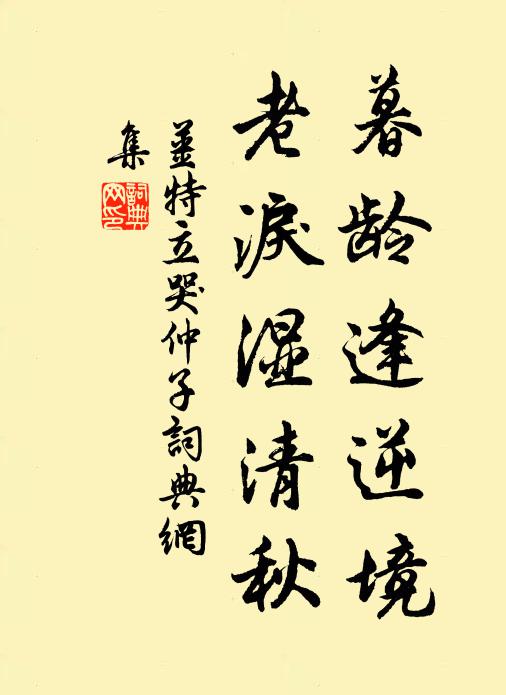 暮龄逢逆境
老淚湿清秋
薑特立哭仲子詞典網
集
詞典
网印